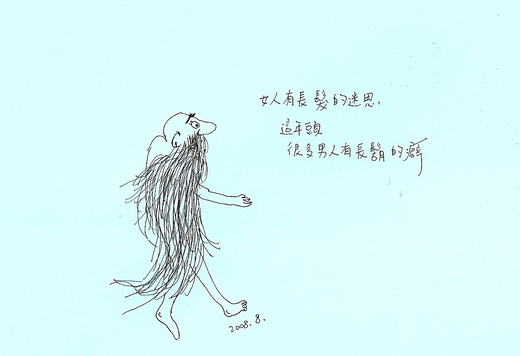 女人有長髮的迷思,
這年頭
很多男人有長鬍的癖
2008.8.